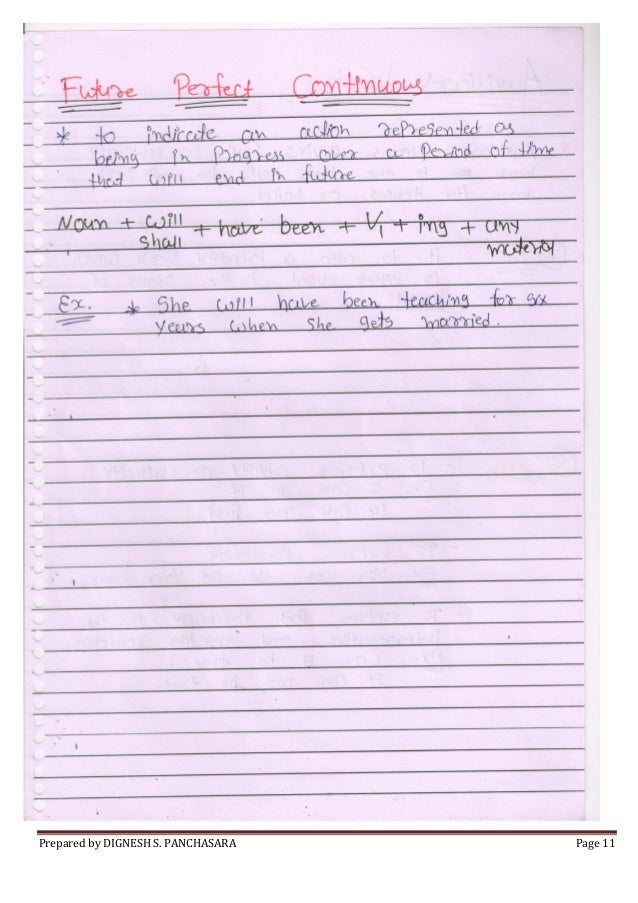 Future Perfect Continuous
* to indicate an action represented as
being in Progress over a Period of time
that will end in future
Noun + will + have been + V1 + ing + any
shall material
Ex. * She will have been teaching for six
years when she gets married.
Prepared by DIGNESH S. PANCHASARA Page 11